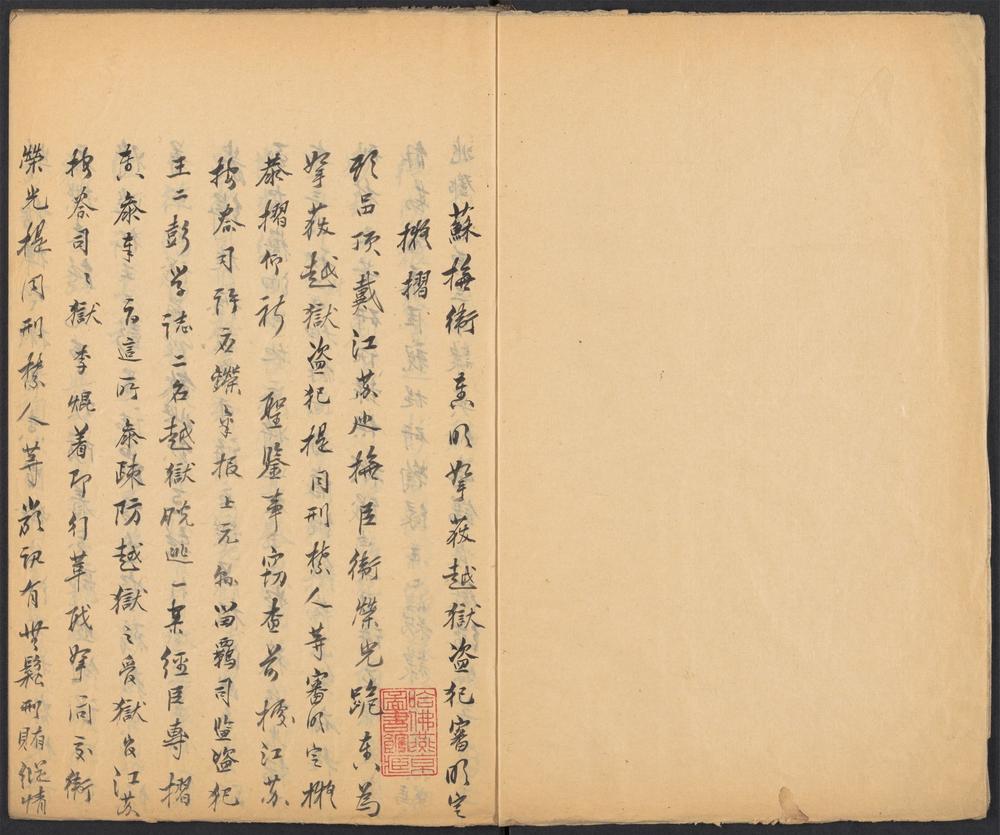 蘇撫衛 奏明拏獲越獄盜犯審明定
擬摺
頭品頂戴江蘇巡撫臣衛榮光跪 奏為
拏獲越獄盜犯提同刑禁人等審明定擬
恭摺仰祈 聖鑒事竊查前據江蘇
按察司許 報上元縣留羈司監盜犯
王二彭學誌二名越獄脫逃一案經臣專摺
奏參奉 旨這所參疎防越獄之獄官江蘇
按察司司獄李焜着即行革職拏問交衛
榮光提同刑禁人等嚴訊有無鬆刑賄縱情
哈佛燕京圖書館